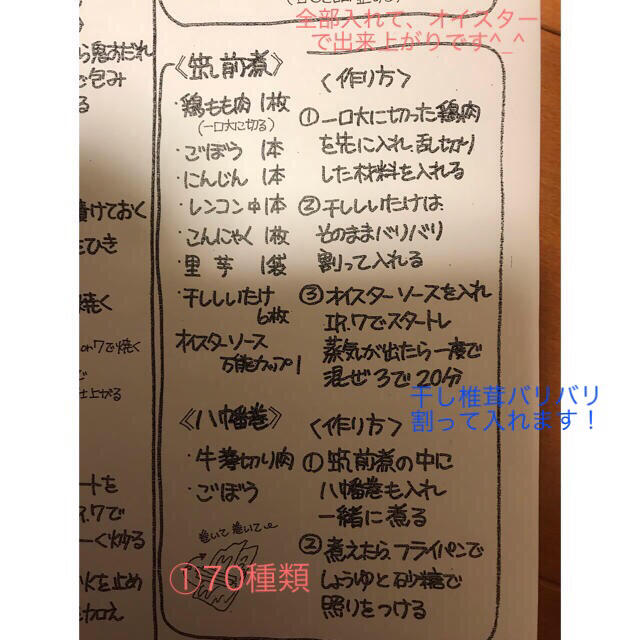 全部入れて、オイスター
で出来上がりです^_^
ら鬼すだれ
で包み
る
漬けておく
をひき
焼く
on7で焼く
で
仕上がる
ートを
R.7で
ーく炒る
火を止め
を加え
《筑前煮》
・鶏もも肉 1枚
(一口大に切る)
・ごぼう 1本
・にんじん 1本
・レンコン中1本
・こんにゃく 1枚
・里芋 1袋
・干ししいたけ
6枚
オイスターソース
万能カップ1
〈作り方〉
①一口大に切った鶏肉
を先に入れ、乱切り
した材料を入れる
②干ししいたけは
そのままバリバリ
割って入れる
③オイスターソースを入れ
IR.7でスタートし
蒸気が出たら一度で
混ぜ3で20分
干し椎茸バリバリ
割って入れます！
《八幡巻》
・牛薄切り肉
・ごぼう
巻いて巻いて
①70種類
〈作り方〉
①筑前煮の中に
八幡巻も入れ
一緒に煮る
②煮えたら、フライパンで
しょうゆと砂糖で
照りをつける